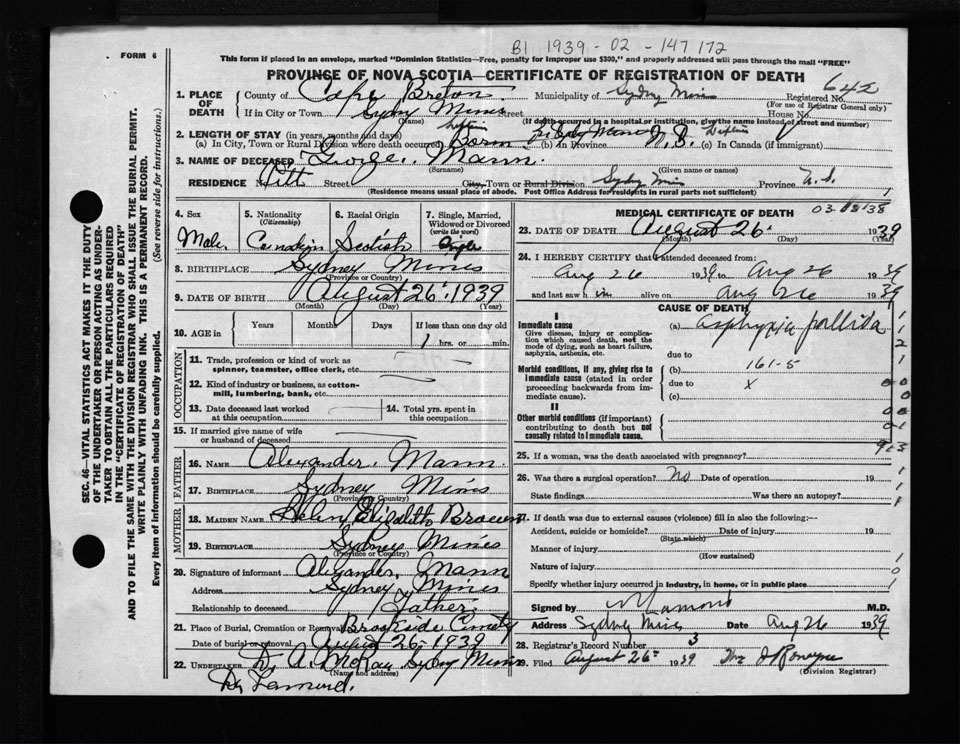 B1 1939 - 02 - 147172
FORM 6
This form if placed in an envelope, marked "Dominion Statistics—Free, penalty for improper use $300," and properly addressed will pass through the mail "FREE"
PROVINCE OF NOVA SCOTIA—CERTIFICATE OF REGISTRATION OF DEATH
642
1. PLACE OF DEATH
County of Cape Breton Municipality of Sydney Mines Registered No.
(For use of Registrar General only)
If in City or Town Sydney Mines Street House No.
(Name) (If death occurred in a hospital or institution, give the name instead of street and number)
2. LENGTH OF STAY (in years, months and days)
(a) In City, Town or Rural Division where death occurred Born (b) in Province N.S. (c) In Canada (if immigrant)
3. NAME OF DECEASED George Mann
(Surname) (Given name or names)
RESIDENCE Pitt Street City, Town or Rural Division Sydney Mines Province N.S.
(Residence means usual place of abode. Post Office Address for residents in rural parts not sufficient)
4. Sex Male
5. Nationality (Citizenship) Canadian
6. Racial Origin Scotish
7. Single, Married, Widowed or Divorced (write the word) Single
8. BIRTHPLACE Sydney Mines
(Province or Country)
9. DATE OF BIRTH August 26, 1939
(Month) (Day) (Year)
10. AGE in Years Months Days If less than one day old
1 hrs. or min.
OCCUPATION
11. Trade, profession or kind of work as spinner, teamster, office clerk, etc.
12. Kind of industry or business, as cotton-mill, lumbering, bank, etc.
13. Date deceased last worked at this occupation
14. Total yrs. spent in this occupation
15. If married give name of wife or husband of deceased
FATHER
16. NAME Alexander Mann
17. BIRTHPLACE Sydney Mines
(Province or Country)
MOTHER
18. MAIDEN NAME Helen Elizabeth Brown
19. BIRTHPLACE Sydney Mines
(Province or Country)
20. Signature of informant Alexander Mann
Address Sydney Mines
Relationship to deceased Father
21. Place of Burial, Cremation or Removal Brookside Cemetery
Date of burial or removal August 26, 1939
22. UNDERTAKER D. A. McKay Sydney Mines
(Name and address)
MEDICAL CERTIFICATE OF DEATH
23. DATE OF DEATH August 26 1939
(Month) (Day) (Year)
24. I HEREBY CERTIFY that I attended deceased from:
Aug 26 1939 to Aug 26 1939
and last saw him alive on Aug 26 1939
CAUSE OF DEATH
I
Immediate cause
Give disease, injury or complication which caused death, not the mode of dying, such as heart failure, asphyxia, asthenia, etc.
(a) Asphyxia pallida
due to
Morbid conditions, if any, giving rise to immediate cause (stated in order proceeding backwards from immediate cause).
(b) 161-5
due to X
(c)
II
Other morbid conditions (if important) contributing to death but not causally related to immediate cause.
25. If a woman, was the death associated with pregnancy?
26. Was there a surgical operation? No Date of operation 19
State findings Was there an autopsy?
27. If death was due to external causes (violence) fill in also the following:—
Accident, suicide or homicide? Date of injury 19
(State which)
Manner of injury
(How sustained)
Nature of injury
Specify whether injury occurred in industry, in home, or in public place
Signed by M.D.
Address Sydney Mines Date Aug 26 1939
28. Registrar's Record Number 3
29. Filed August 26 1939
(Division Registrar)
SEC. 46—VITAL STATISTICS ACT MAKES IT THE DUTY
OF THE UNDERTAKER OR PERSON ACTING AS UNDER-
TAKER TO OBTAIN ALL THE PARTICULARS REQUIRED
IN THE "CERTIFICATE OF REGISTRATION OF DEATH"
AND TO FILE THE SAME WITH THE DIVISION REGISTRAR WHO SHALL ISSUE THE BURIAL PERMIT.
WRITE PLAINLY WITH UNFADING INK. THIS IS A PERMANENT RECORD.
Every item of information should be carefully supplied. (See reverse side for instructions.)